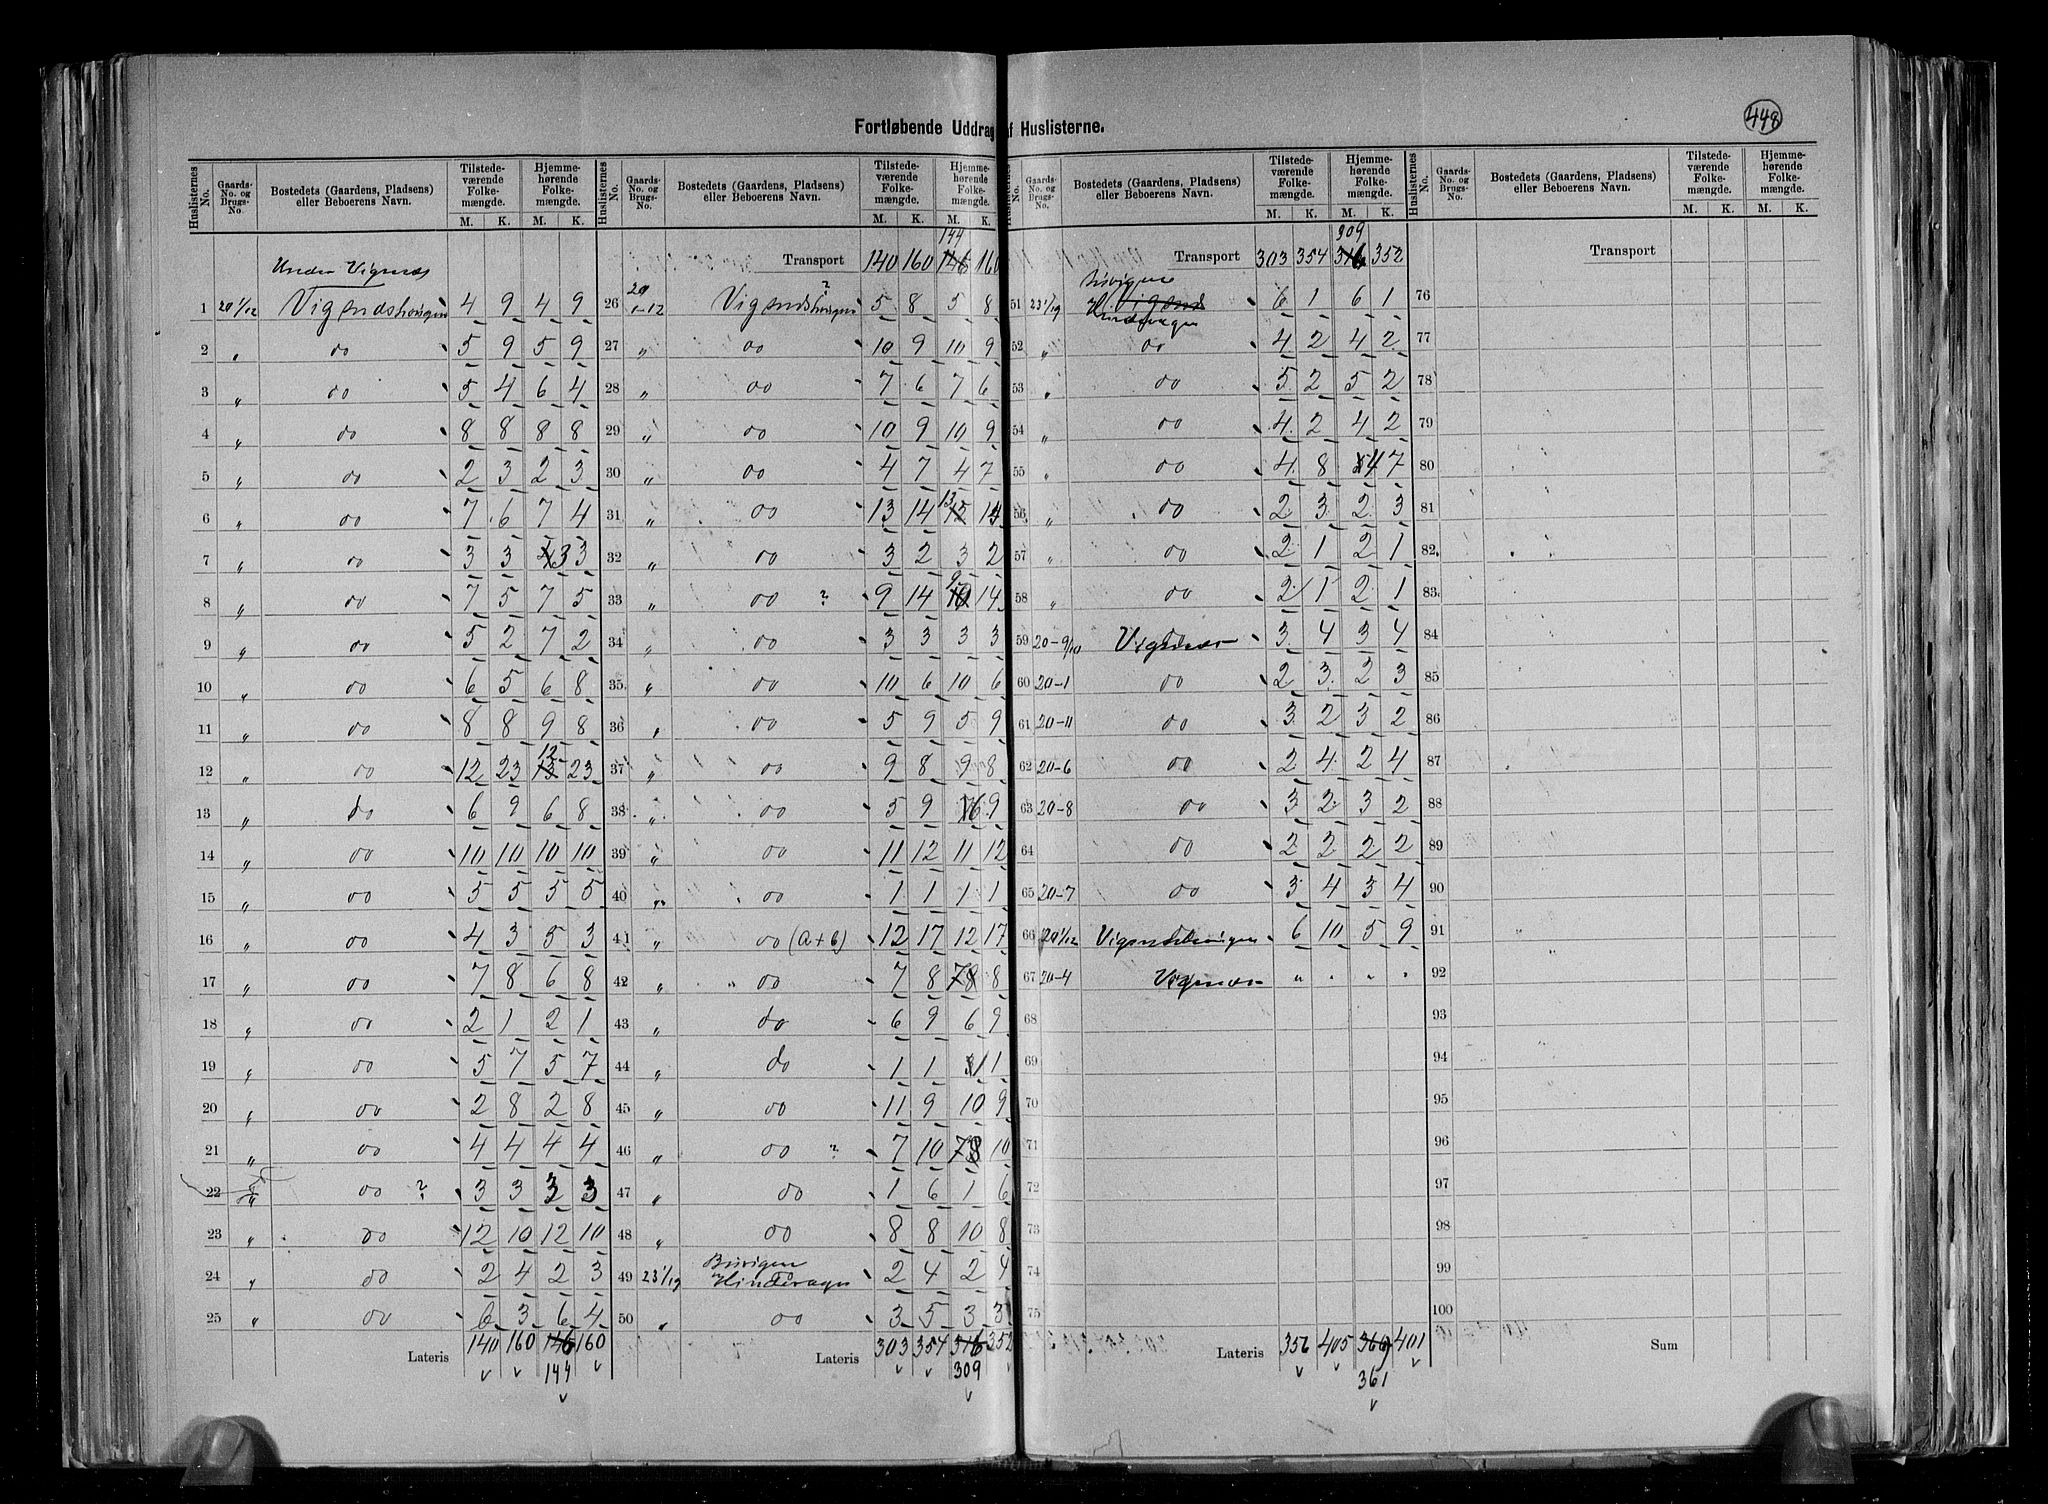 448
Fortløbende Uddrag af Huslisterne.
Huslisternes No. | Gaards-No. og Brugs-No. | Bostedets (Gaardens, Pladsens) eller Beboerens Navn. | Tilstedeværende Folkemængde. M. K. | Hjemmehørende Folkemængde. M. K.
Under Vigsnæs
1 20 1/12 Vigsnæshougen 4 9 4 9
2 „ do 5 9 5 9
3 „ do 5 4 6 4
4 „ do 8 8 8 8
5 „ do 2 3 2 3
6 „ do 7 6 7 4
7 „ do 3 3 3 3
8 „ do 7 5 7 5
9 „ do 5 2 7 2
10 „ do 6 5 6 8
11 „ do 8 8 9 8
12 „ do 12 23 12 23
13 „ do 6 9 6 8
14 „ do 10 10 10 10
15 „ do 5 5 5 5
16 „ do 4 3 5 3
17 „ do 7 8 6 8
18 „ do 2 1 2 1
19 „ do 5 7 5 7
20 „ do 2 8 2 8
21 „ do 4 4 4 4
22 „ do ? 3 3 3 3
23 „ do 12 10 12 10
24 „ do 2 4 2 3
25 „ do 6 3 6 4
Lateris 140 160 146 160
144
Huslisternes No. | Gaards-No. og Brugs-No. | Bostedets (Gaardens, Pladsens) eller Beboerens Navn. | Tilstedeværende Folkemængde. M. K. | Hjemmehørende Folkemængde. M. K.
144
Transport 140 160 146 160
26 20 1-12 Vigsnæshougen ? 5 8 5 8
27 „ do 10 9 10 9
28 „ do 7 6 7 6
29 „ do 10 9 10 9
30 „ do 4 7 4 7
31 „ do 13 14 13 15 14
32 „ do 3 2 3 2
33 „ do ? 9 14 9 10 14
34 „ do 3 3 3 3
35 „ do 10 6 10 6
36 „ do 5 9 5 9
37 „ do 9 8 9 8
38 „ do 5 9 6 9
39 „ do 11 12 11 12
40 „ do 1 1 1 1
41 „ do (a+b) 12 17 12 17
42 „ do 7 8 7 8 8
43 „ do 6 9 6 9
44 „ do 1 1 1 1
45 „ do 11 9 10 9
46 „ do ? 7 10 7 8 10
47 „ do 1 6 1 6
48 „ do 8 8 10 8
49 23 1/19 2 4 2 4
50 „ do 3 5 3 3
Lateris 303 354 316 352
309
Huslisternes No. | Gaards-No. og Brugs-No. | Bostedets (Gaardens, Pladsens) eller Beboerens Navn. | Tilstedeværende Folkemængde. M. K. | Hjemmehørende Folkemængde. M. K.
309
Transport 303 354 316 352
51 23 1/19 6 1 6 1
52 „ do 4 2 4 2
53 „ do 5 2 5 2
54 „ do 4 2 4 2
55 „ do 4 8 4 7
56 „ do 2 3 2 3
57 „ do 2 1 2 1
58 „ do 2 1 2 1
59 20-9/10 Vigsnæs 3 4 3 4
60 20-1 do 2 3 2 3
61 20-11 do 3 2 3 2
62 20-6 do 2 4 2 4
63 20-8 do 3 2 3 2
64 do 2 2 2 2
65 20-7 do 3 4 3 4
66 20 1/12 Vigsnæshougen 6 10 5 9
67 20-4 Vigsnæs „ „ „ „
68
69
70
71
72
73
74
75
Lateris 356 405 369 401
361
Huslisternes No. | Gaards-No. og Brugs-No. | Bostedets (Gaardens, Pladsens) eller Beboerens Navn. | Tilstedeværende Folkemængde. M. K. | Hjemmehørende Folkemængde. M. K.
Transport
76
77
78
79
80
81
82
83
84
85
86
87
88
89
90
91
92
93
94
95
96
97
98
99
100
Sum